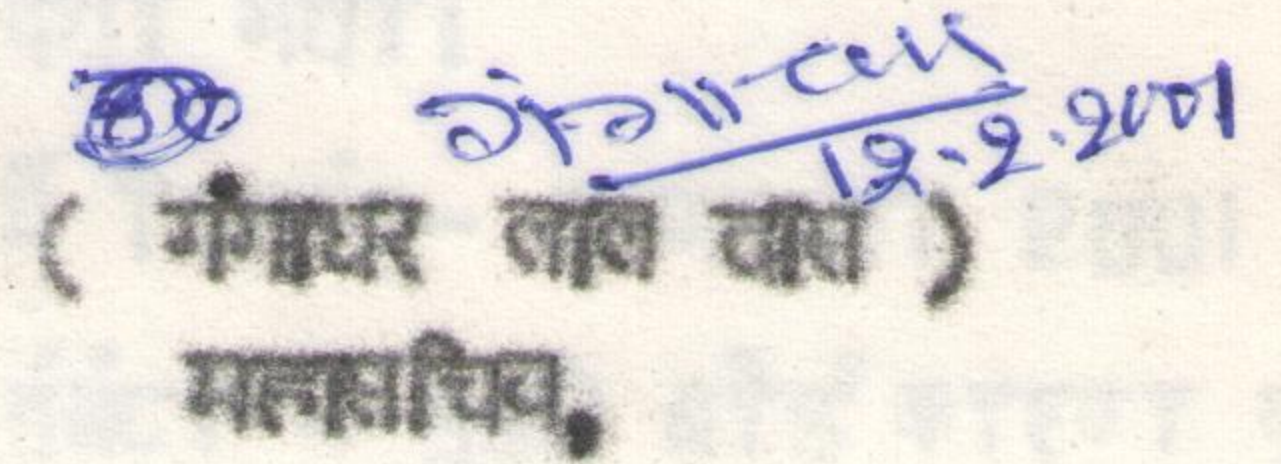 12.2.2001
( गंगाधर लाल दास )
महासचिव,